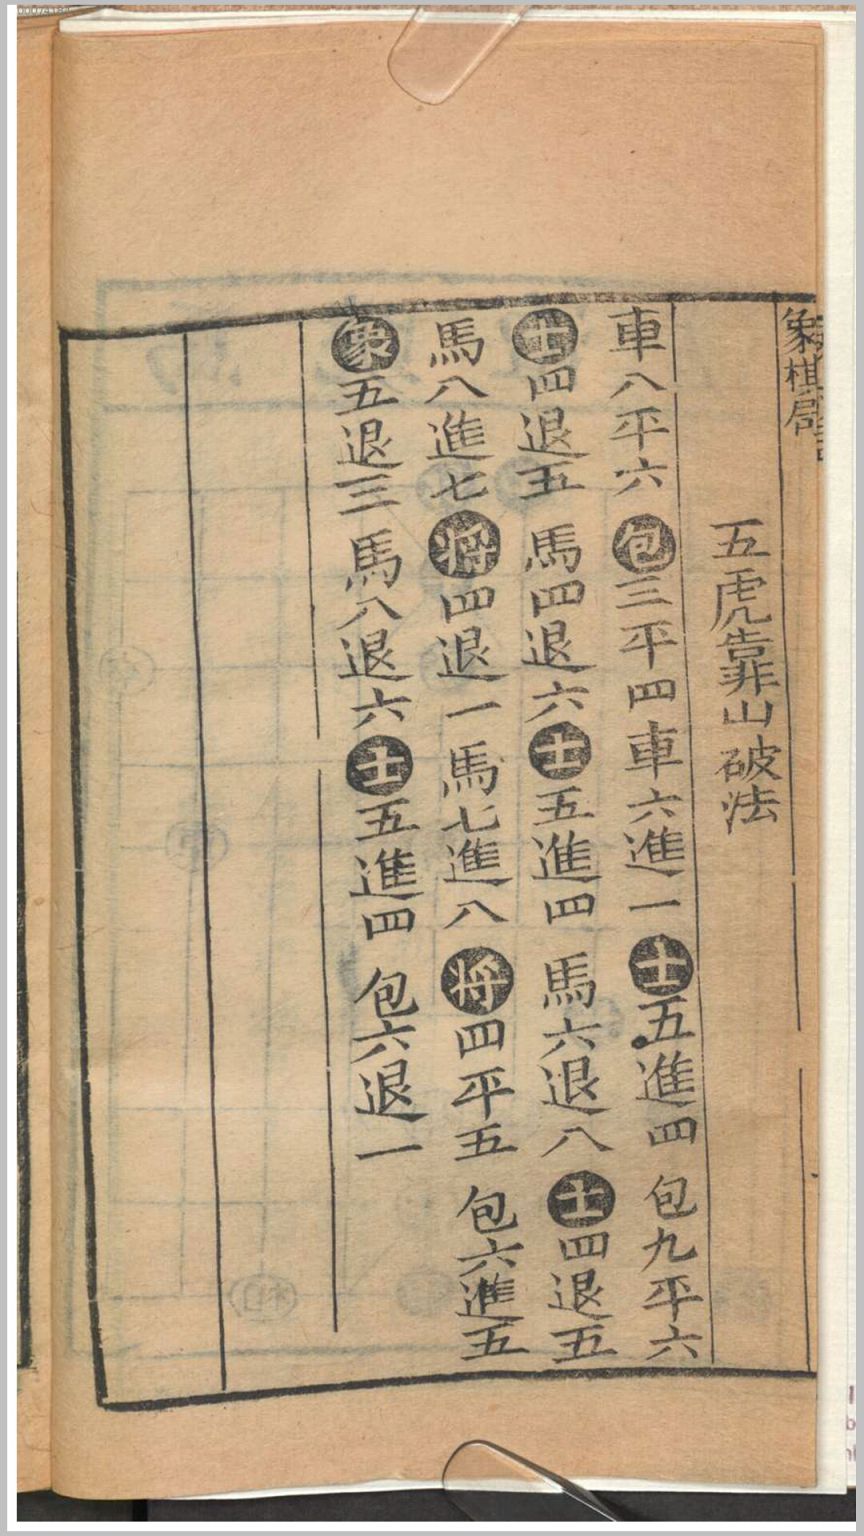 象棋局
五虎靠山破法
車八平六包三平四車六進一士五進四包九平六
士四退五馬四退六士五進四馬六退八士四退五
馬八進七将四退一馬七進八将四平五包六進五
象五退三馬八退六士五進四包六退一